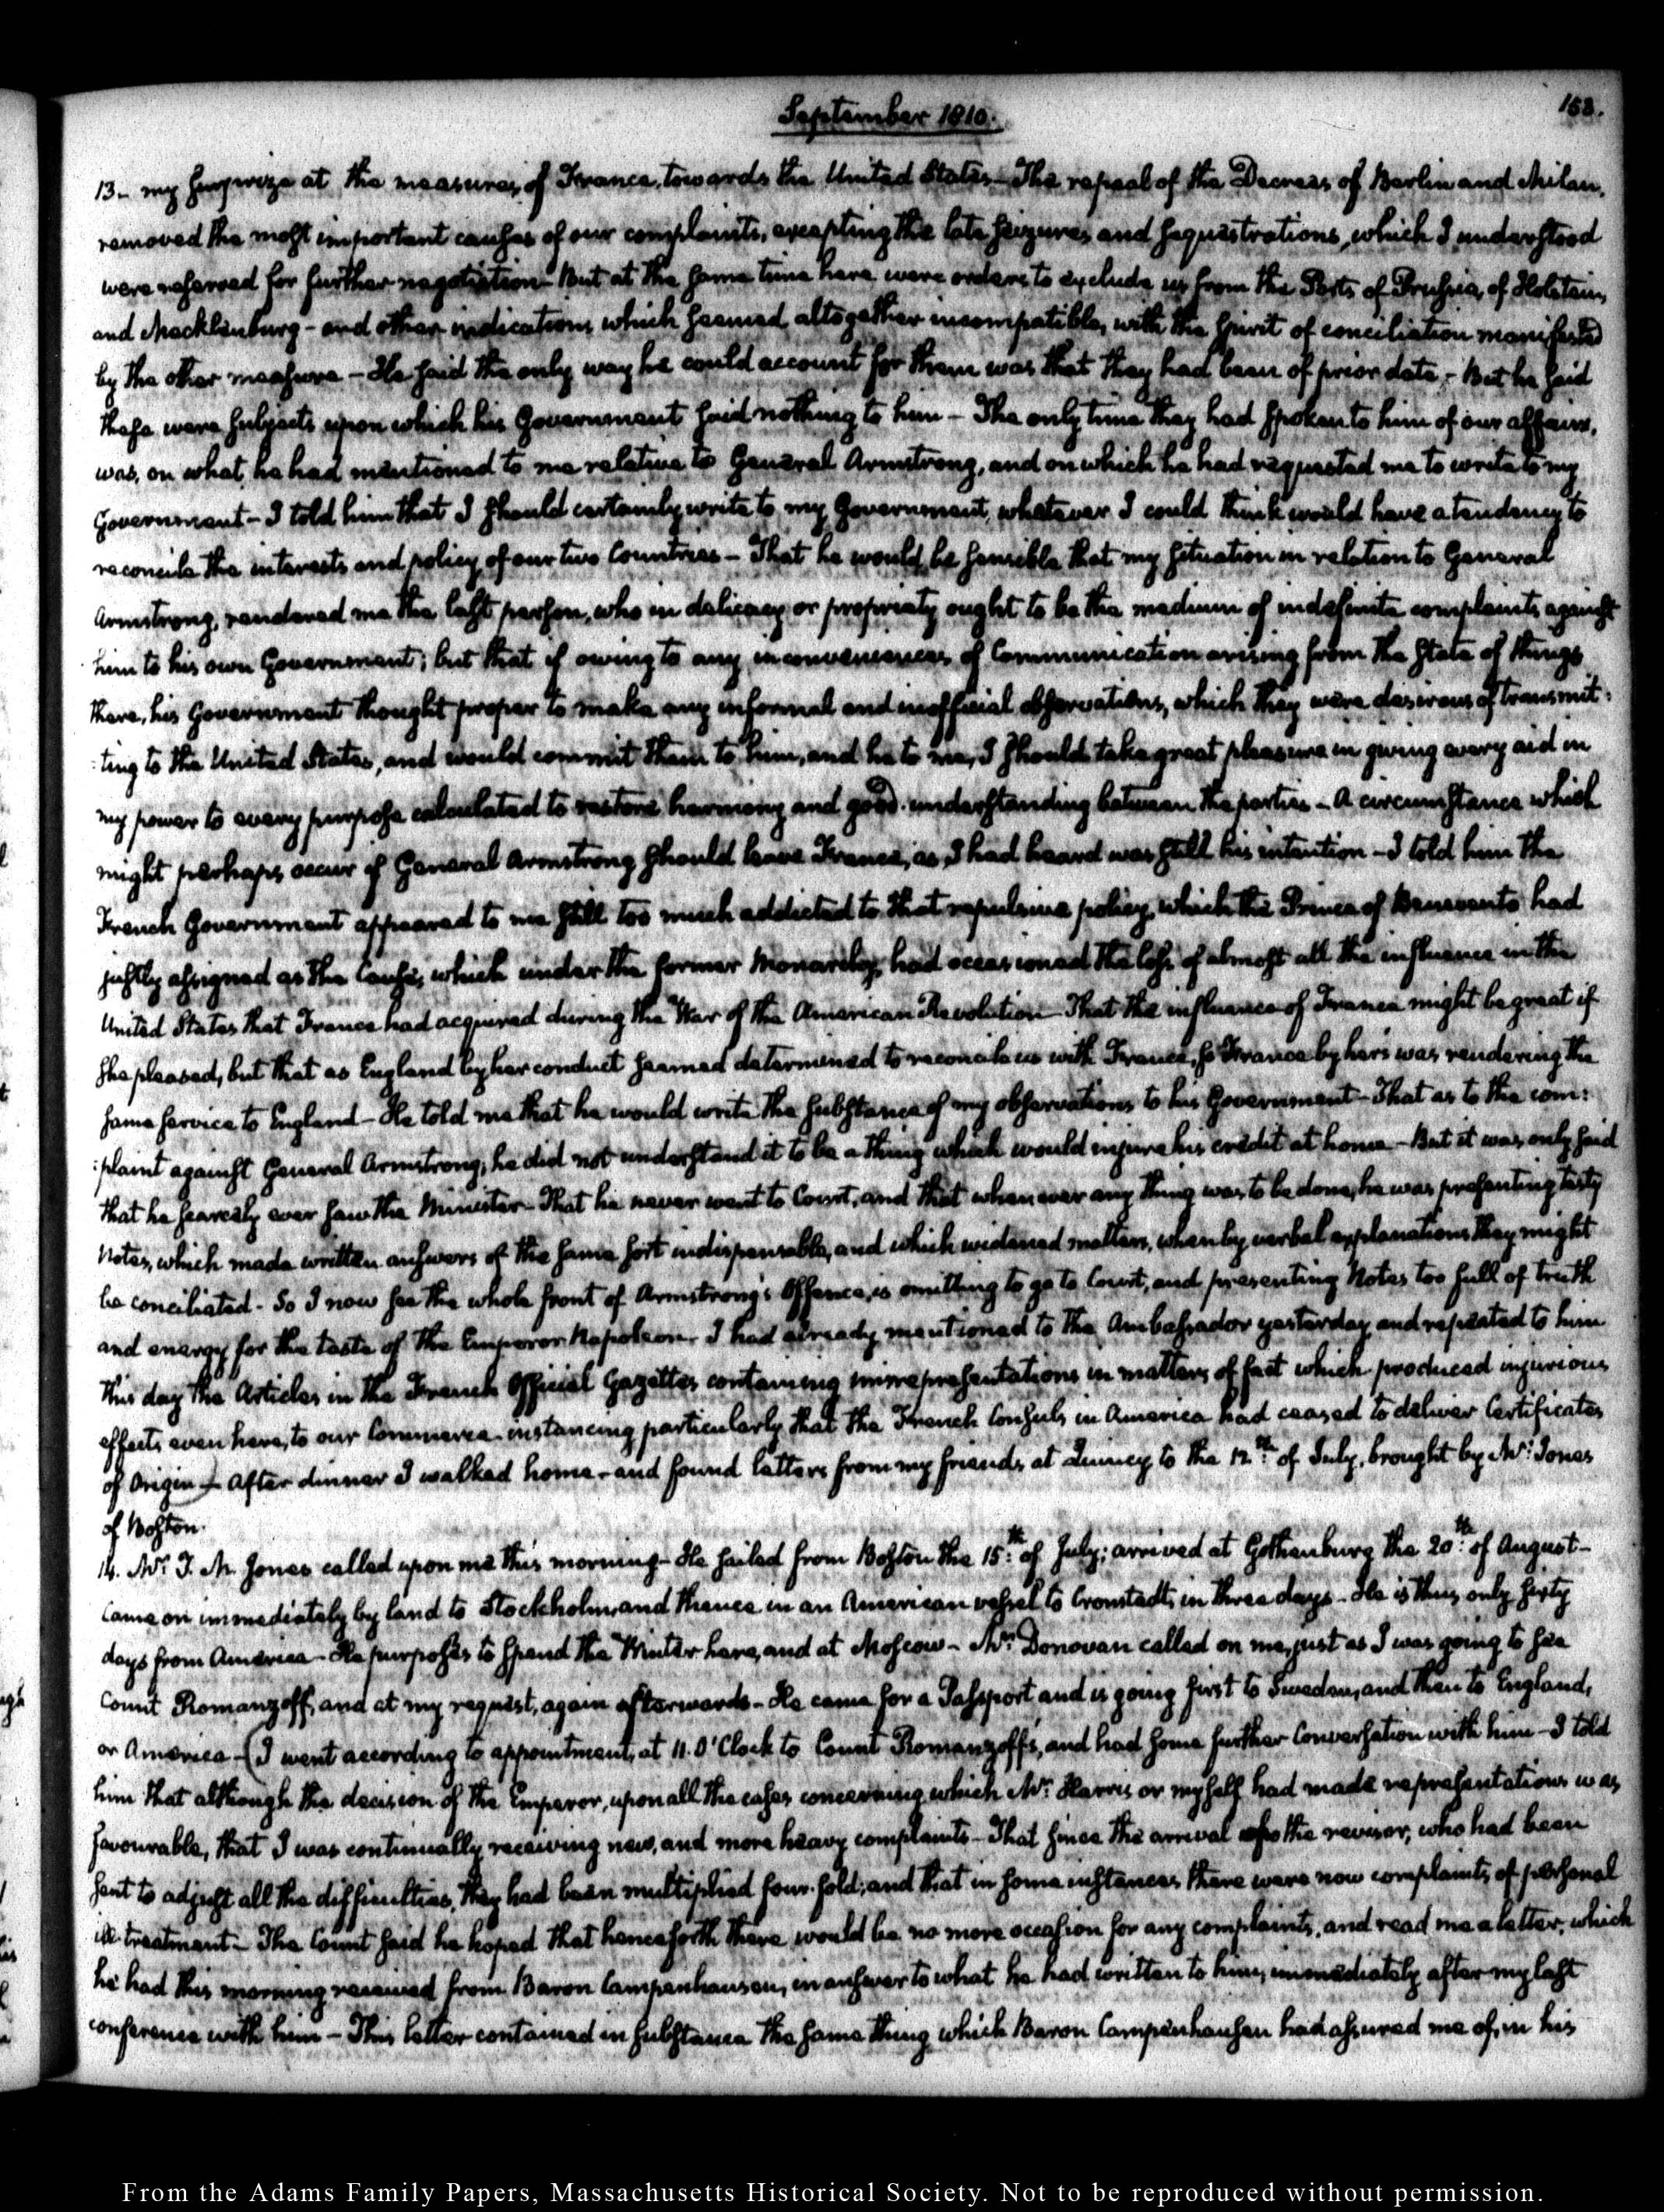 September 1810.
153.
13- my surprize at the measures of France, towards the United States- The repeal of the Decrees of Berlin and Milan,
removed the most important causes of our complaints, excepting the late seizures and sequestrations, which I understood
were reserved for further negotiation- But at the same time here were orders to exclude us from the Ports of Prussia, of Holstein,
and Mecklenburg- and other indications which seemed altogether incompatible, with the spirit of conciliation manifested
by the other measure- He said the only way he could account for them was that they had been of prior date,- But he said
these were subjects upon which his Government said nothing to him- The only time they had spoken to him of our affairs,
was, on what he had mentioned to me relative to General Armstrong, and on which he had requested me to write to my
Government- I told him that I should certainly write to my Government, whatever I could think would have a tendency to
reconcile the interests and policy of our two Countries- That he would be sensible that my situation in relation to General
Armstrong, rendered me the last person, who in delicacy or propriety ought to be the medium of indefinite complaints against
him to his own Government; but that if owing to any inconveniences of Communication arising from the state of things
there, his Government thought proper to make any informal and inofficial observations, which they were desirous of transmit:
:ting to the United States, and would commit them to him, and he to me, I should take great pleasure in giving every aid in
my power to every purpose calculated to restore harmony and good understanding between the parties- A circumstance which
might perhaps occur if General Armstrong should leave France, as I had heard was still his intention- I told him the
French Government appeared to me still too much addicted to that repulsive policy, which the Prince of Benevento had
justly assigned as the Cause, which under the former Monarchy, had occasioned the loss of almost all the influence in the
United States that France had acquired during the War of the American Revolution- That the influence of France might be great if
she pleased, but that as England by her conduct seemed determined to reconcile us with France, so France by hers was rendering the
same service to England- He told me that he would write the substance of my observations to his Government- That as to the com:
:plaint against General Armstrong, he did not understand it to be a thing which would injure his credit at home- But it was only said
that he scarcely ever saw the Minister- That he never went to Court, and that whenever any thing was to be done, he was presenting testy
Notes, which made written answers of the same sort indispensable, and which widened matters, when by verbal explanations they might
be conciliated- So I now see the whole front of Armstrong's Offence, is omitting to go to Court, and presenting Notes too full of truth
and energy for the taste of the Emperor Napoleon. I had already mentioned to the Ambassador yesterday, and repeated to him
this day the Articles in the French Official Gazettes containing misrepresentations in matters of fact which produced injurious
effects even here, to our Commerce- instancing particularly that the French Consuls in America had ceased to deliver Certificates
of Origin- After dinner I walked home- and found letters from my friends at Quincy to the 12th of July, brought by Mr: Jones
of Boston.
14. Mr: T. M. Jones called upon me this morning- He sailed from Boston the 15th: of July; arrived at Gothenburg the 20th: of August-
Came on immediately by land to Stockholm, and thence in an American vessel to Cronstadt, in three days- He is thus only sixty
days from America- He purposes to spend the Winter here, and at Moscow- Mr: Donovan called on me, just as I was going to see
Count Romanzoff, and at my request, again afterwards- He came for a Passport and is going first to Sweden, and then to England,
or America- (I went according to appointment, at 11. O'Clock to Count Romanzoff's, and had some further Conversation with him- I told
him that although the decision of the Emperor, upon all the cases concerning which Mr: Harris or myself had made representations was
favourable, that I was continually receiving new, and more heavy complaints- That since the arrival of the revisor, who had been
sent to adjust all the difficulties, they had been multiplied four-fold; and that in some instances there were now complaints of personal
ill-treatment- The Count said he hoped that henceforth there would be no more occasion for any complaints, and read me a letter, which
he had this morning received from Baron Campenhausen, in answer to what he had written to him, immediately after my last
conference with him- This letter contained in substance the same thing which Baron Campenhausen had assured me of, in his
From the Adams Family Papers, Massachusetts Historical Society. Not to be reproduced without permission.